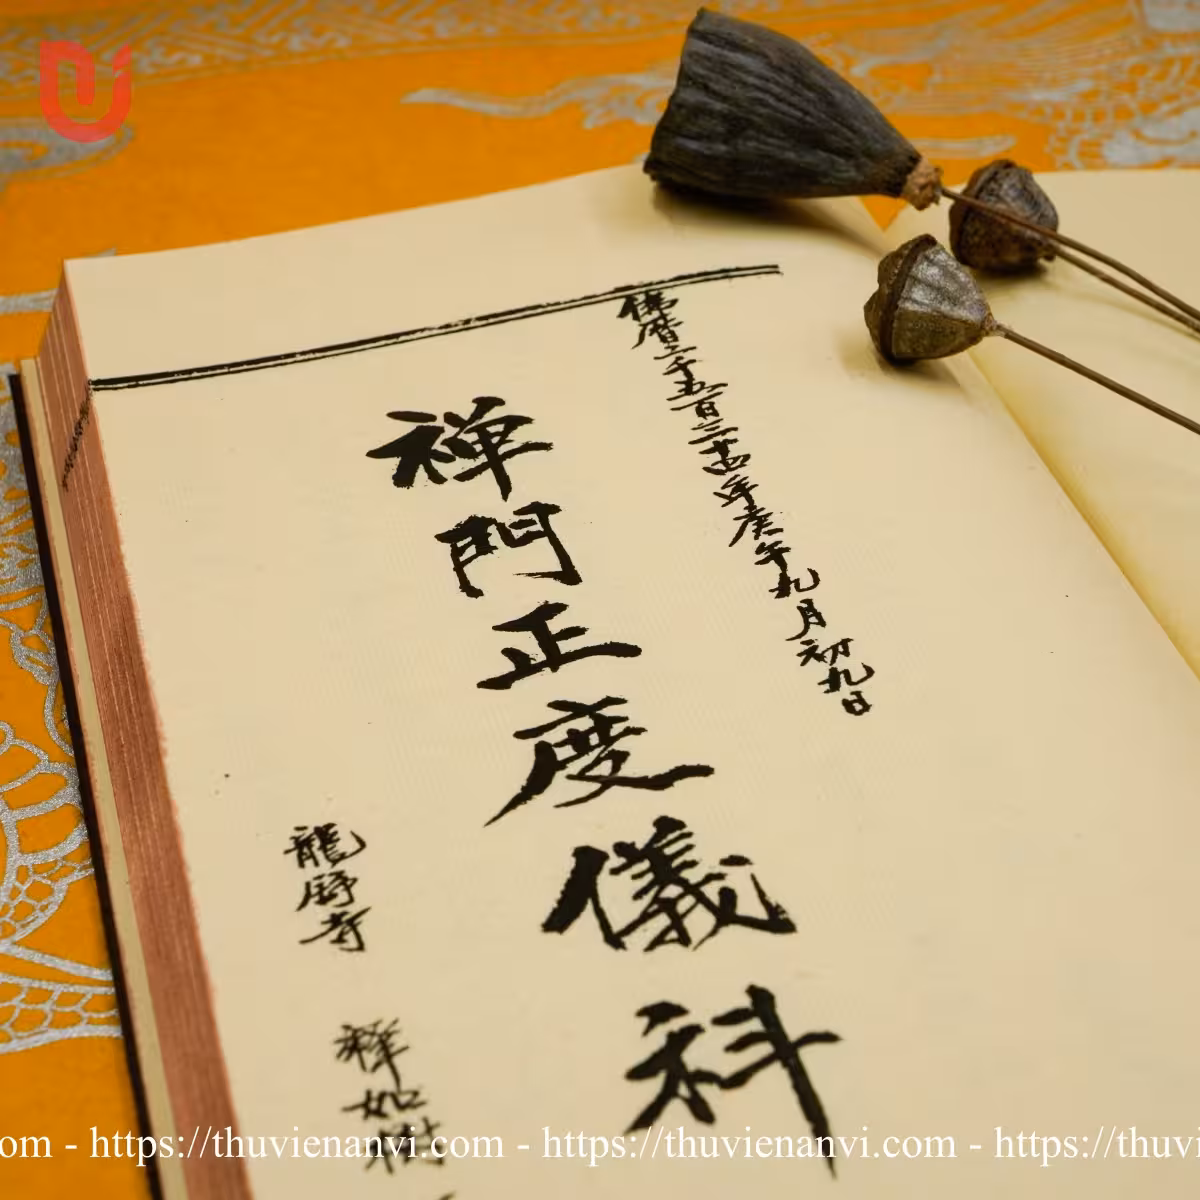 佛曆二千五百三十四年庚午九月初九日
禅門正度儀科
龍 寺
釋如樹
om - https://thuvienanvi.com - https://thuvienanvi.com - https://thuvi